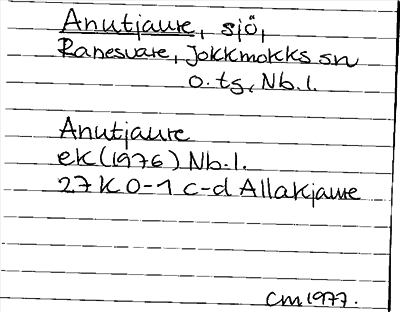 Anutjaure, sjö,
Ranesvare, Jokkmokks sn
o. tg, Nb.l.
Anutjaure
ek (1976) Nb.l.
27K 0-1 c-d Allakjaure
CM 1977.